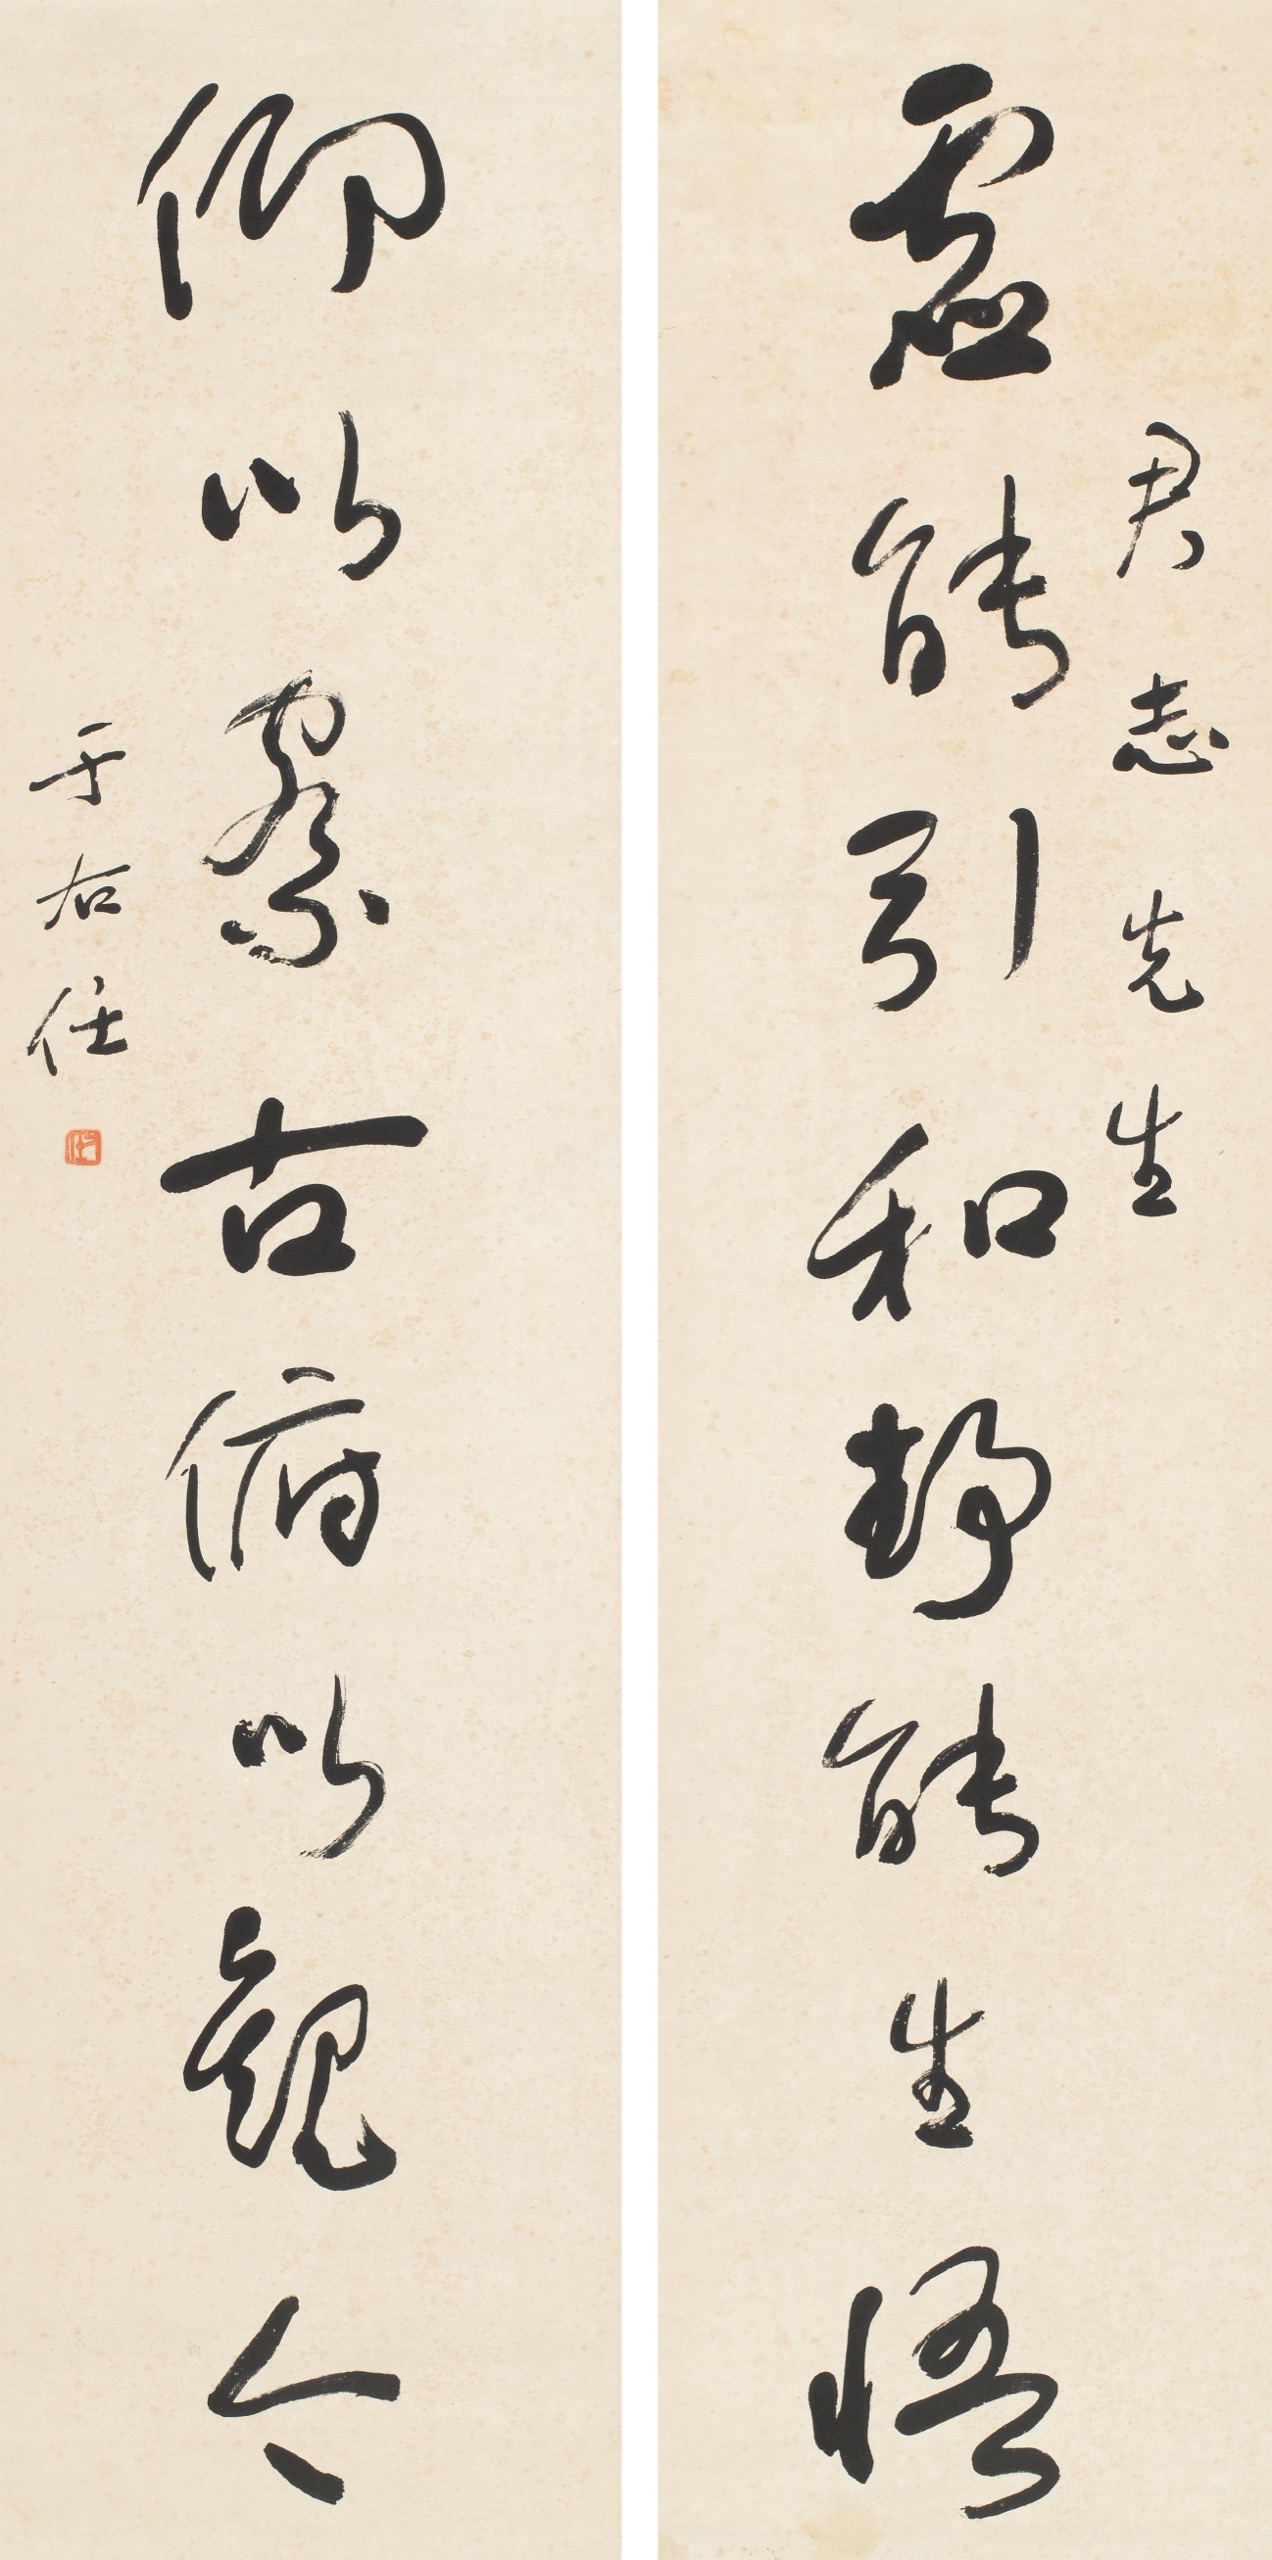 君志先生
虛能引和靜能生悟
仰以察古俯以觀今
于右任